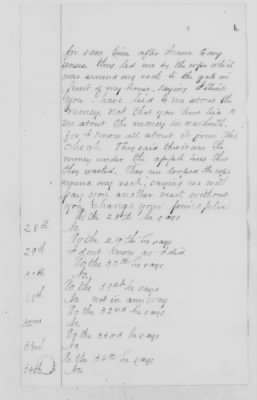 for some time after I came to my
sense they led me by the rope which
was around my neck to the gate in
front of my house, saying I think
you have lied to me about the
money, not that you have lied to
me about the money in
for, I know all about it from this
Check. They said that was the
money under the apple tree that
they wanted. They un looped the rope
around my neck, saying we will
pay you another visit without
you change your principles
To the 28th he says
28th No.
To the 29th he says
29th I dont know as I did
To the 30th he says
30th No.
To the 31st he says
31th No not in any way
To the 32nd he says
32nd No.
To the 33rd he says
33rd No
To the 34th he says
34th No